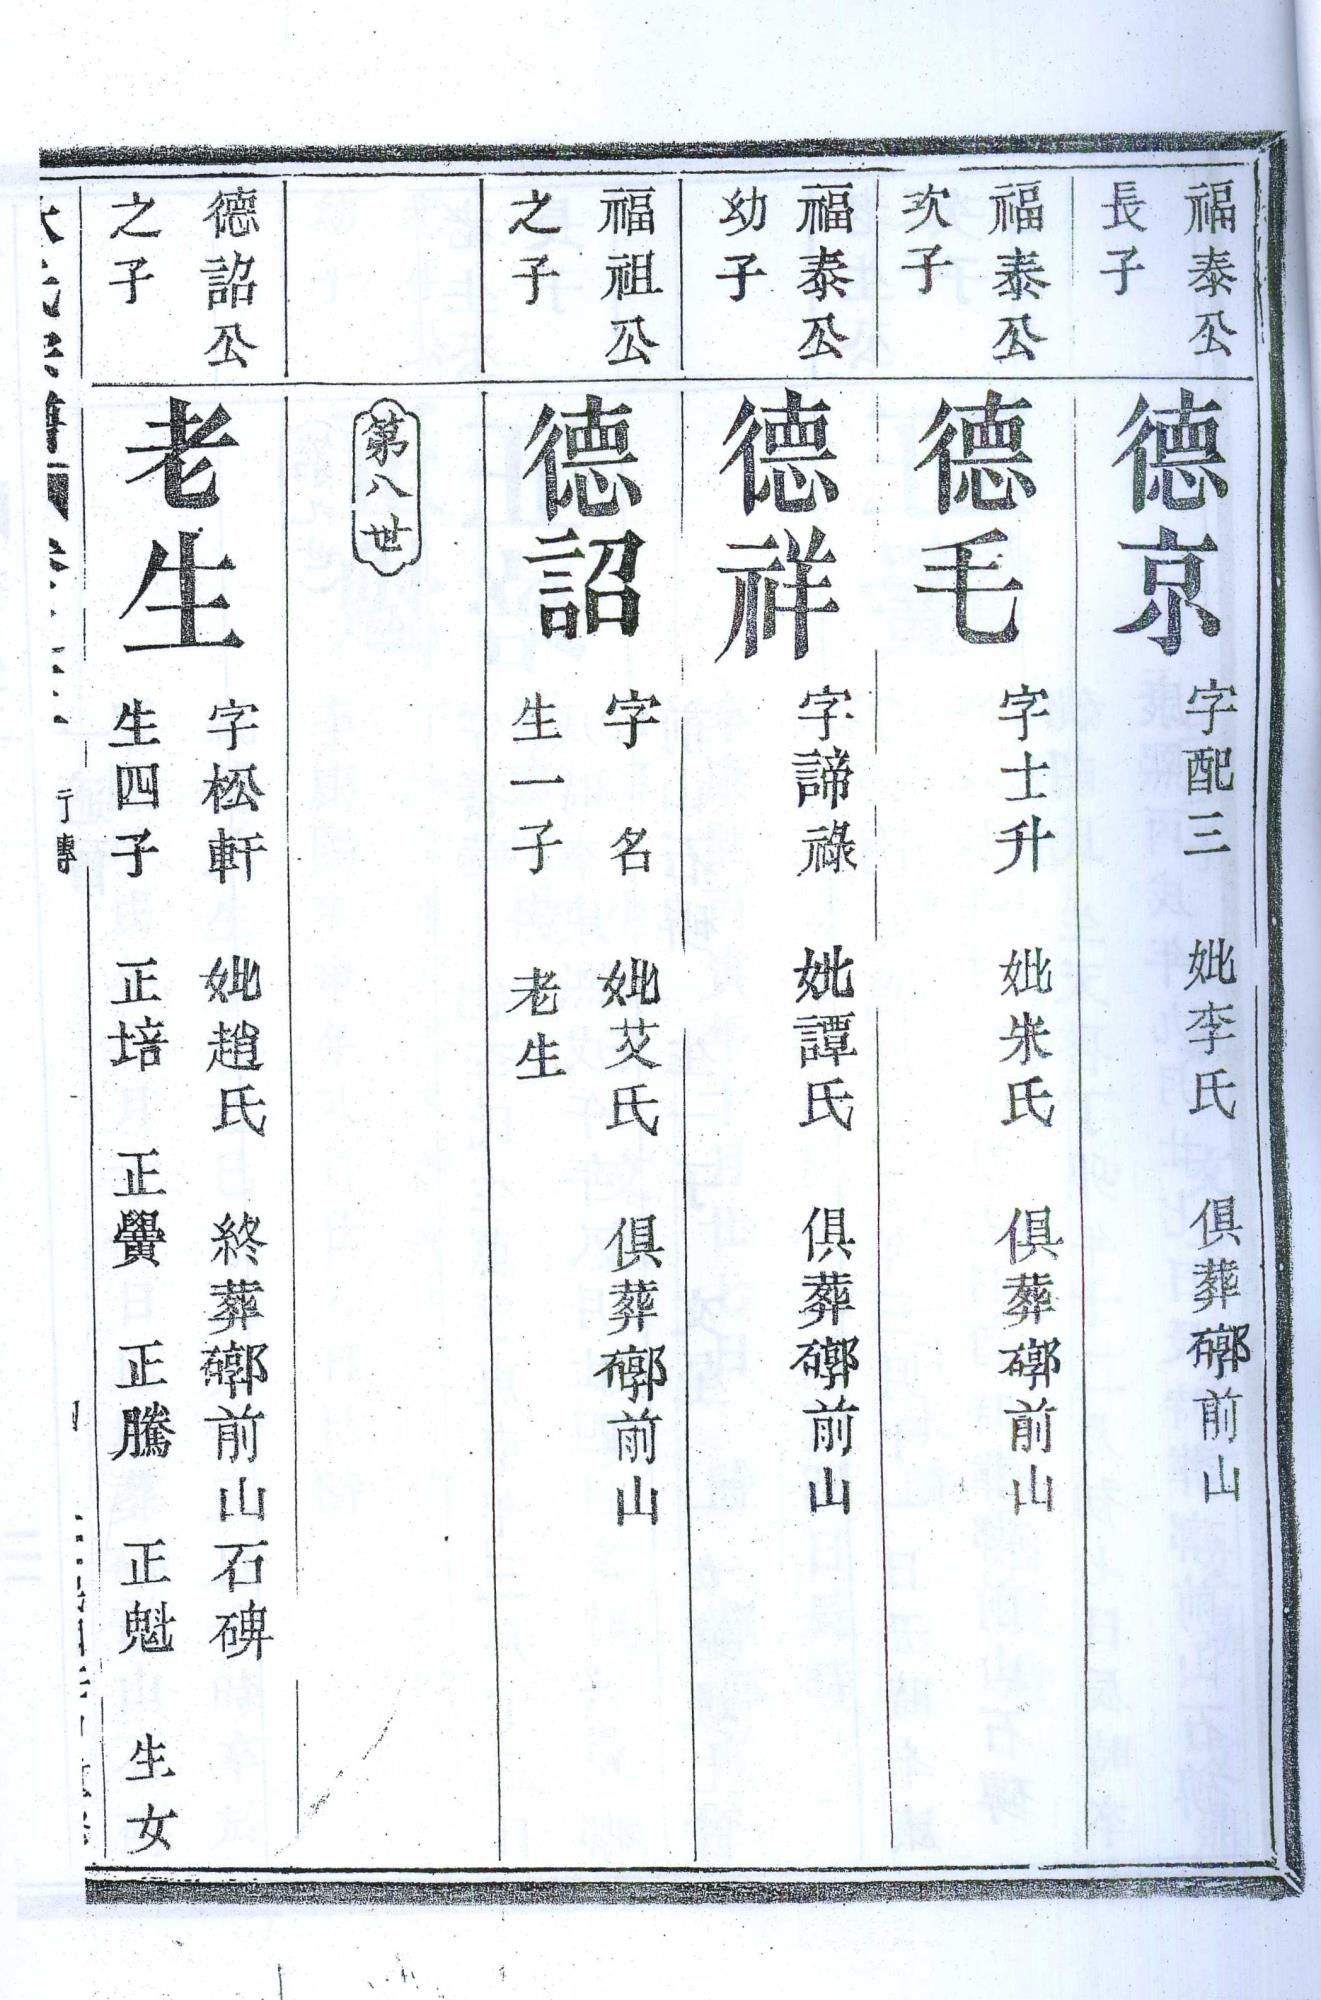 福泰公
長子
德京
字配三 妣李氏 俱葬𥕏前山
福泰公
次子
德毛
字士升 妣朱氏 俱葬𥕏前山
福泰公
幼子
德祥
字諦祿 妣譚氏 俱葬𥕏前山
福祖公
之子
德詔
字 名 妣艾氏 俱葬𥕏前山
生一子 老生
第八世
德詔公
之子
老生
字松軒 妣趙氏 終葬𥕏前山石碑
生四子 正培 正黌 正騰 正魁 生女
行傳